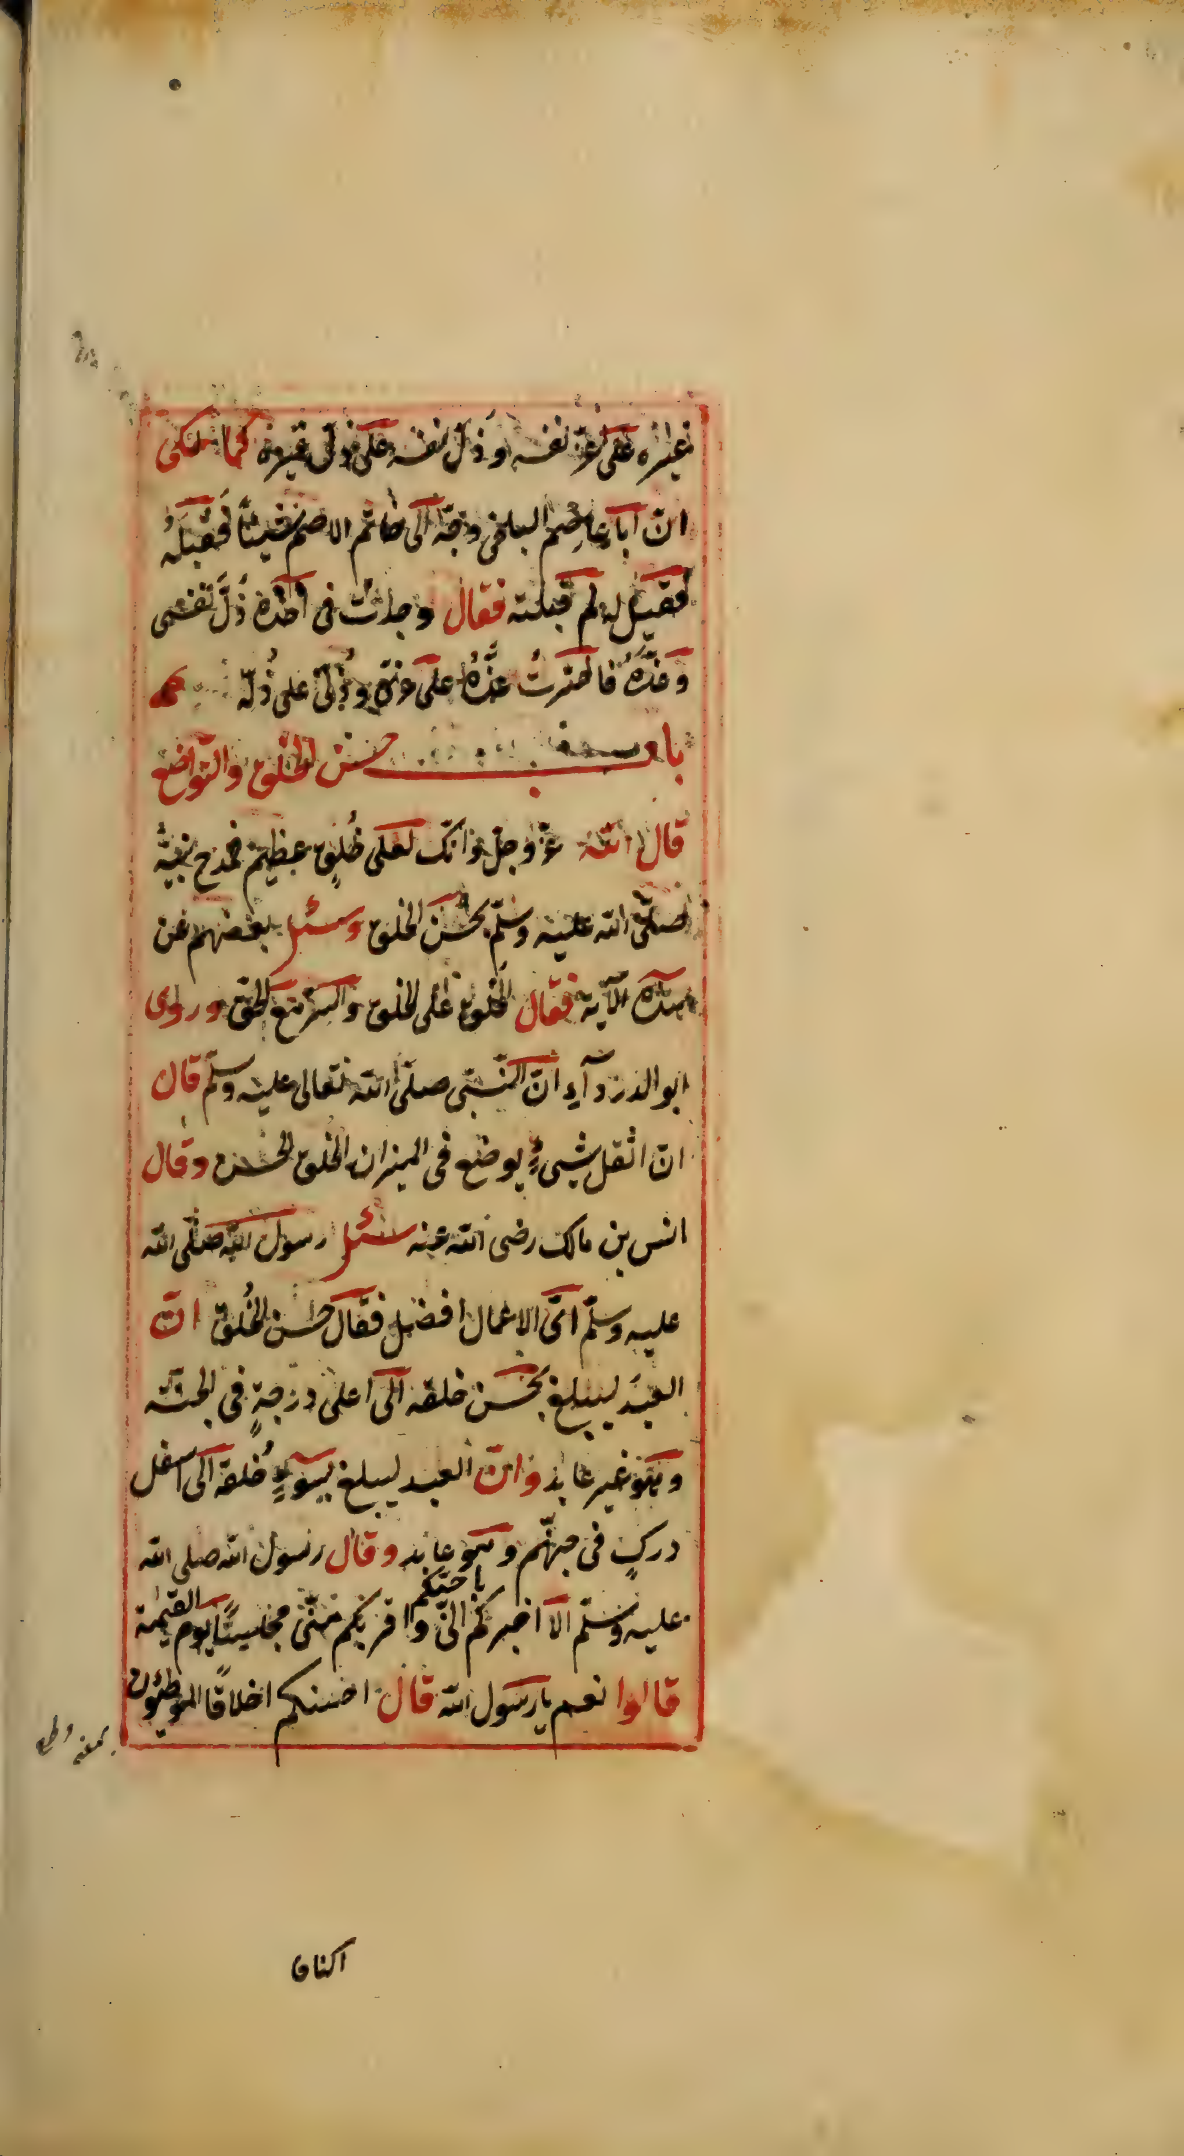 غيره على عزّ نفسه وذلّ نفسه على ذلّ غيره كما حكى
انّ اباعاصم البلخى وجّه الى حاتم الاصم شيئًا فقبله
فقيل له لم قبلته فقال وجدت فى اخذه ذُلّ نفسى
وعزّه فاخترتُ عزّه على عزّى وذُلّى على ذُلّه
باب حسن الخلق والتواضع
قال الله عزّ وجلّ وانّك لعلى خُلُقٍ عظيم فمدح نبيّه
صلّى الله عليه وسلّم بحُسن الخلق وسئل بعضهم عن
هذه الآية فقال الخلق على الخلق والسرّ مع الحق وروى
ابو الدردآء انّ النّبى صلّى الله تعالى عليه وسلّم قال
انّ اثقل شىءٍ يوضع فى الميزان الخلق الحسن وقال
انس بن مالك رضى الله عنه سئل رسول الله صلّى الله
عليه وسلّم اىّ الاعمال افضل فقال حسن الخُلق انّ
العبد ليبلغ بحُسن خلقه الى اعلى درجةٍ فى الجنّة
وهو غير عابد وانّ العبد ليبلغ بسوءٍ خُلقه الى اسفل
دركٍ فى جهنّم وهو عابد وقال رسول الله صلى الله
عليه وسلّم الا اخبركم باحبّكم الىّ واقربكم منّى مجلسًا يوم القيمة
قالوا نعم يا رسول الله قال احسنكم اخلاقًا الموطئون
اكنافا